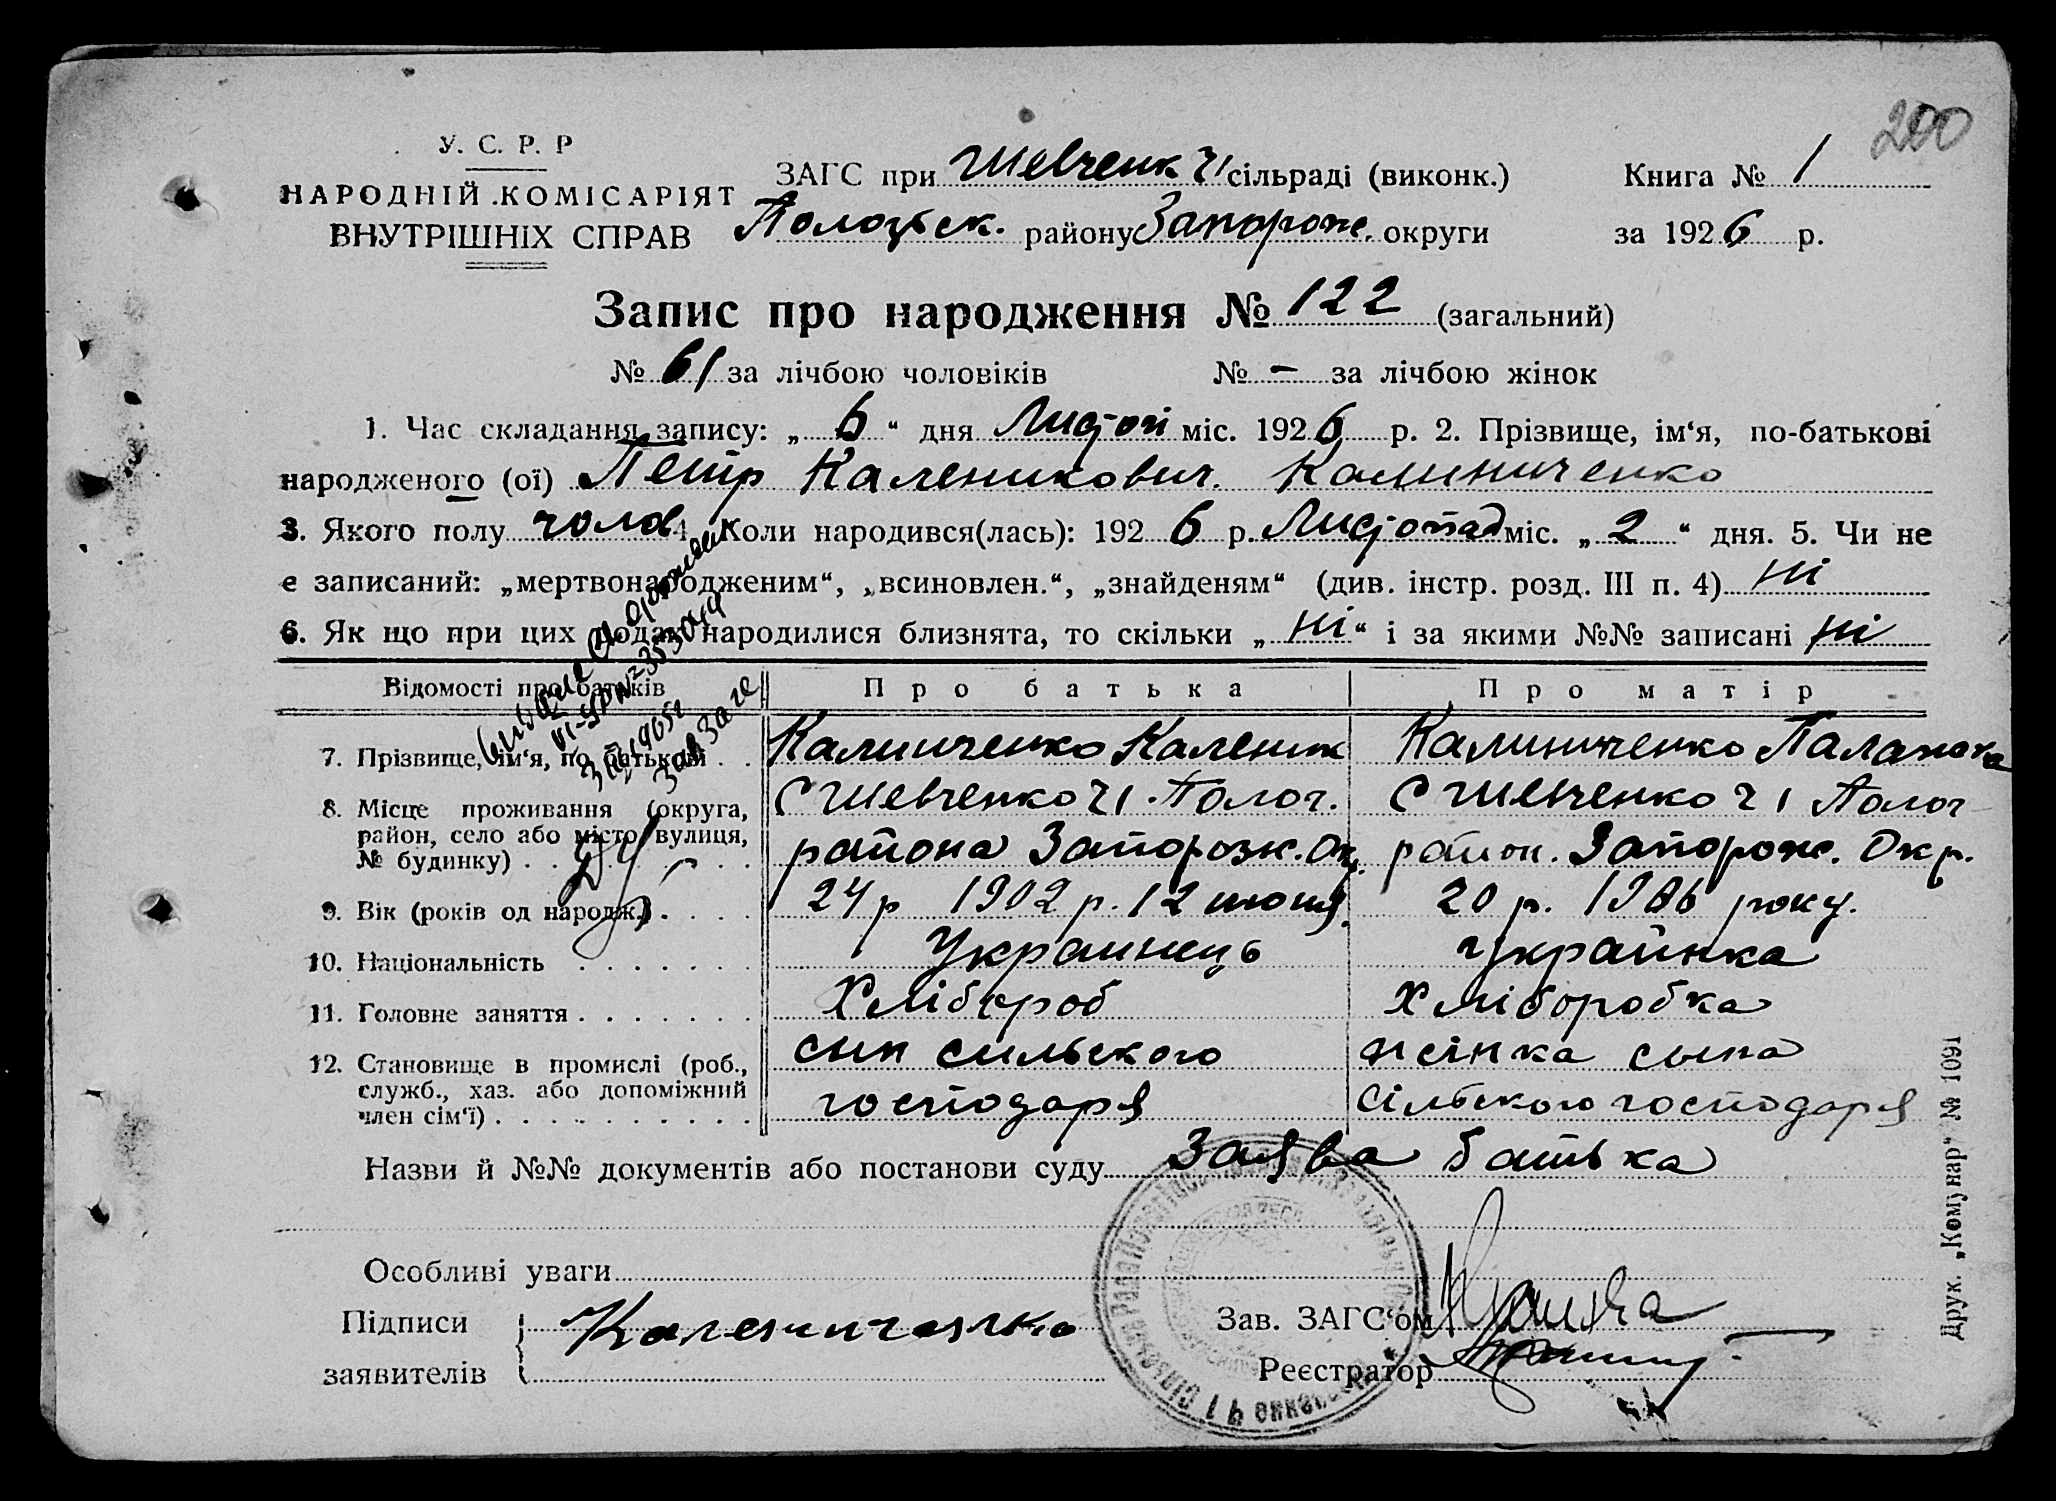 200
У. С. Р. Р
НАРОДНІЙ КОМІСАРІЯТ
ВНУТРІШНІХ СПРАВ
ЗАГС при Шевченк Ч1 сільраді (виконк.)
Пологськ. району Запорож. округи
Книга № 1
за 1926 р.
Запис про народження № 122 (загальний)
№ 61 за лічбою чоловіків № - за лічбою жінок
1. Час складання запису: „6“ дня Листоп міс. 1926 р. 2. Прізвище, ім‘я, по-батькові
народженого (ої) Петр Каленикович. Калиниченко
3. Якого полу чолов 4. Коли народився(лась): 1926 р. Листопад міс. „2“ дня. 5. Чи не
є записаний: „мертвонародженим“, „всиновлен.“, „знайденям“ (див. інстр. розд. III п. 4) ні
6. Як що при цих родах народилися близнята, то скільки „ні“ і за якими №№ записані ні
Відомості про батьків Про батька Про матір
7. Прізвище, ім‘я, по батькові . . Калиниченко Каленик Калиниченко Палажка
8. Місце проживання (округа, район, село або місто, вулиця, № будинку)
С Шевченко Ч1. Полог. района Запорозж. Ок.
С Шевченко Ч1 Полог район. Запорож. Окр.
9. Вік (років од народж.) . . . . 24 р 1902 р. 12 июня. 20 р. 1906 року.
10. Національність . . . . . . . Украинець Украинка
11. Головне заняття . . . . . . . Хлібороб Хліборобка
12. Становище в промислі (роб., служб., хаз. або допоміжний член сім‘ї) . . . . . . . . . .
сын сильского господаря
жінка сына сільского господаря
Назви й №№ документів або постанови суду Заява батька
Особливі уваги
Підписи
заявителів
Калениченко
Зав. ЗАГС‘ом
Реєстратор
Друк. „Комунар“ № 1091